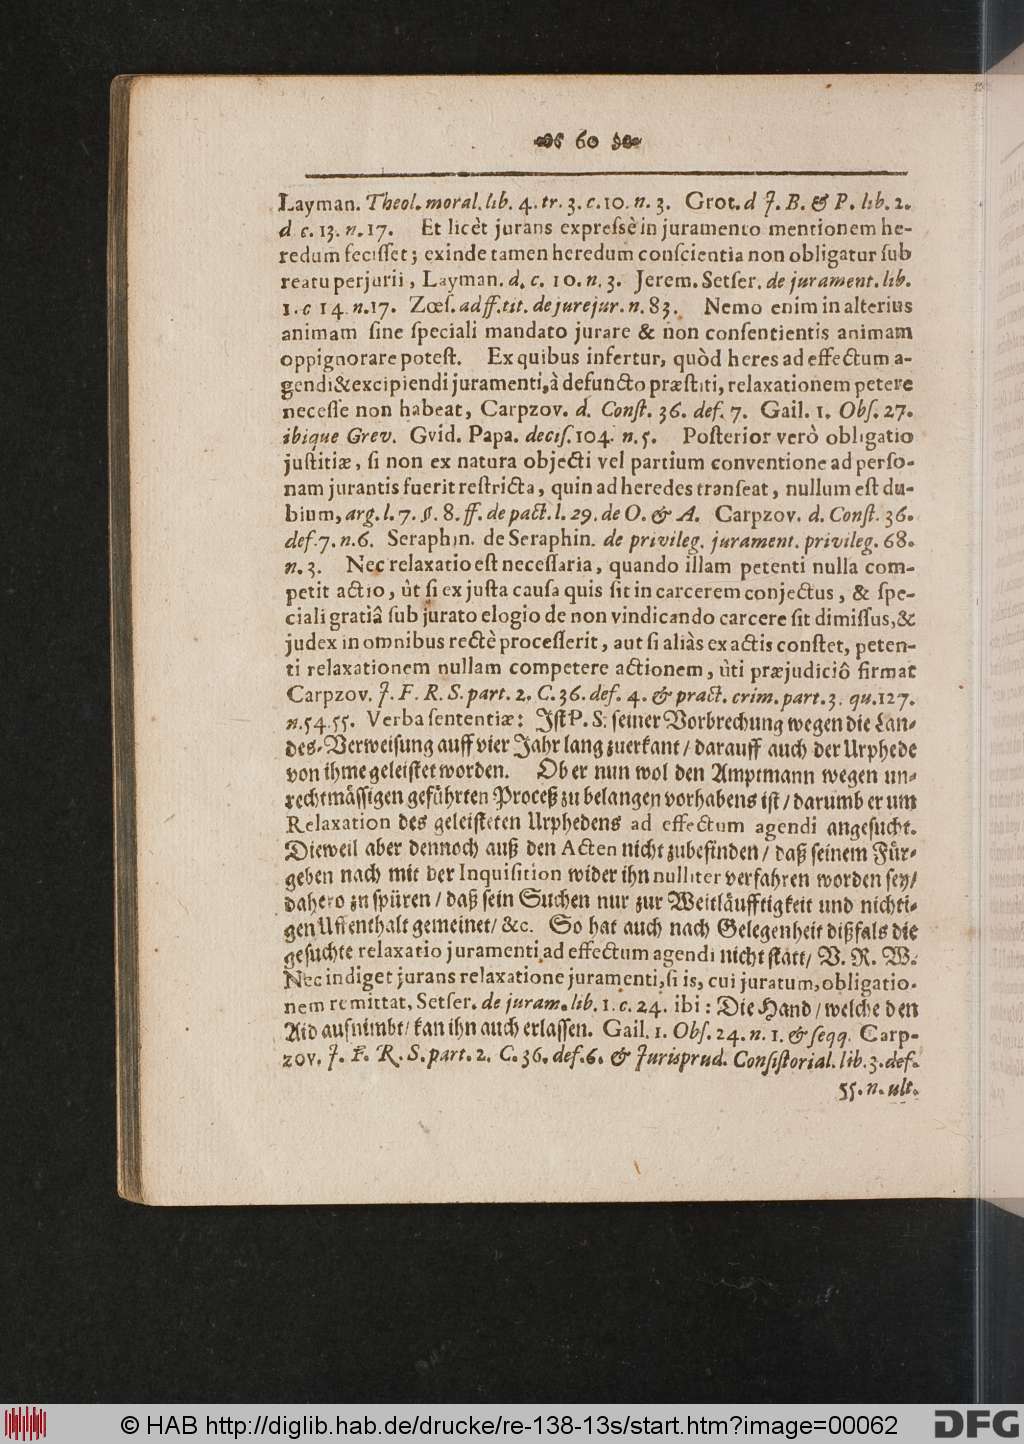 60
Layman. Theol. moral. lib. 4. tr. 3. c. 10. n. 3. Grot. d J. B. & P. lib. 2.
d c. 13. n. 17. Et licèt jurans expreſsè in juramento mentionem he-
redum feciſſet; exinde tamen heredum conſcientia non obligatur ſub
reatu perjurii, Layman. d. c. 10. n. 3. Jerem. Setſer. de jurament. lib.
1. c 14 n. 17. Zœſ. ad ff. tit. de jurejur. n. 83. Nemo enim in alterius
animam ſine ſpeciali mandato jurare & non conſentientis animam
oppignorare poteſt. Ex quibus infertur, quòd heres ad effectum a-
gendi & excipiendi juramenti, à defuncto præſtiti, relaxationem petere
neceſſe non habeat, Carpzov. d. Conſt. 36. def. 7. Gail. 1. Obſ. 27.
ibique Grev. Gvid. Papa. deciſ. 104. n. 5. Poſterior verò obligatio
juſtitiæ, ſi non ex natura objecti vel partium conventione ad perſo-
nam jurantis fuerit reſtricta, quin ad heredes tranſeat, nullum eſt du-
bium, arg. l. 7. §. 8. ff. de pact. l. 29. de O. & A. Carpzov. d. Conſt. 36.
def. 7. n. 6. Seraphin. de Seraphin. de privileg. jurament. privileg. 68.
n. 3. Nec relaxatio eſt neceſſaria, quando illam petenti nulla com-
petit actio, ùt ſi ex juſta cauſa quis ſit in carcerem conjectus, & ſpe-
ciali gratiâ ſub jurato elogio de non vindicando carcere ſit dimiſſus, &
judex in omnibus rectè proceſſerit, aut ſi aliàs ex actis conſtet, peten-
ti relaxationem nullam competere actionem, ùti præjudiciô firmat
Carpzov. J. F. R. S. part. 2. C. 36. def. 4. & pract. crim. part. 3. qu. 127.
n. 54. 55. Verba ſententiæ: Iſt P. S. ſeiner Vorbrechung wegen die Lan-
des-Verweiſung auff vier Jahr lang zuerkant / darauff auch der Urphede
von ihme geleiſtet worden. Ob er nun wol den Amptmann wegen un-
rechtmäſſigen geführten Proceß zu belangen vorhabens iſt / darumb er um
Relaxation des geleiſteten Urphedens ad effectum agendi angeſucht.
Dieweil aber dennoch auß den Acten nicht zubefinden / daß ſeinem Für-
geben nach mit der Inquiſition wider ihn nulliter verfahren worden ſey /
dahero zu ſpüren / daß ſein Suchen nur zur Weitläufftigkeit und nichti-
gen Uffenthalt gemeinet / &c. So hat auch nach Gelegenheit dißfals die
geſuchte relaxatio juramenti ad effectum agendi nicht ſtatt / V. R. W.
Nec indiget jurans relaxatione juramenti, ſi is, cui juratum, obligatio-
nem remittat, Setſer. de juram. lib. 1. c. 24. ibi: Die Hand / welche den
Aid aufnimbt / kan ihn auch erlaſſen. Gail. 1. Obſ. 24. n. 1. & ſeqq. Carp-
zov. J. F. R. S. part. 2. C. 36. def. 6. & Jurisprud. Conſiſtorial. lib. 3. def.
55. n. ult.
© HAB http://diglib.hab.de/drucke/re-138-13s/start.htm?image=00062
DFG